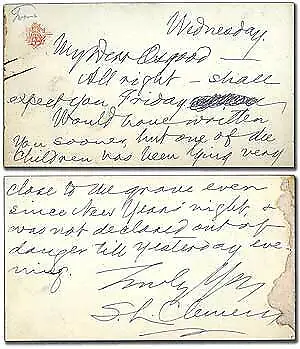 Wednesday.
My Dear Osgood —
All right — shall
expect you Friday
Would have written
you sooner, but one of the
children has been lying very
close to the grave ever
since New Year's night, &
was not declared out of
danger till yesterday eve-
ning.
Truly Yrs
S. L. Clemens